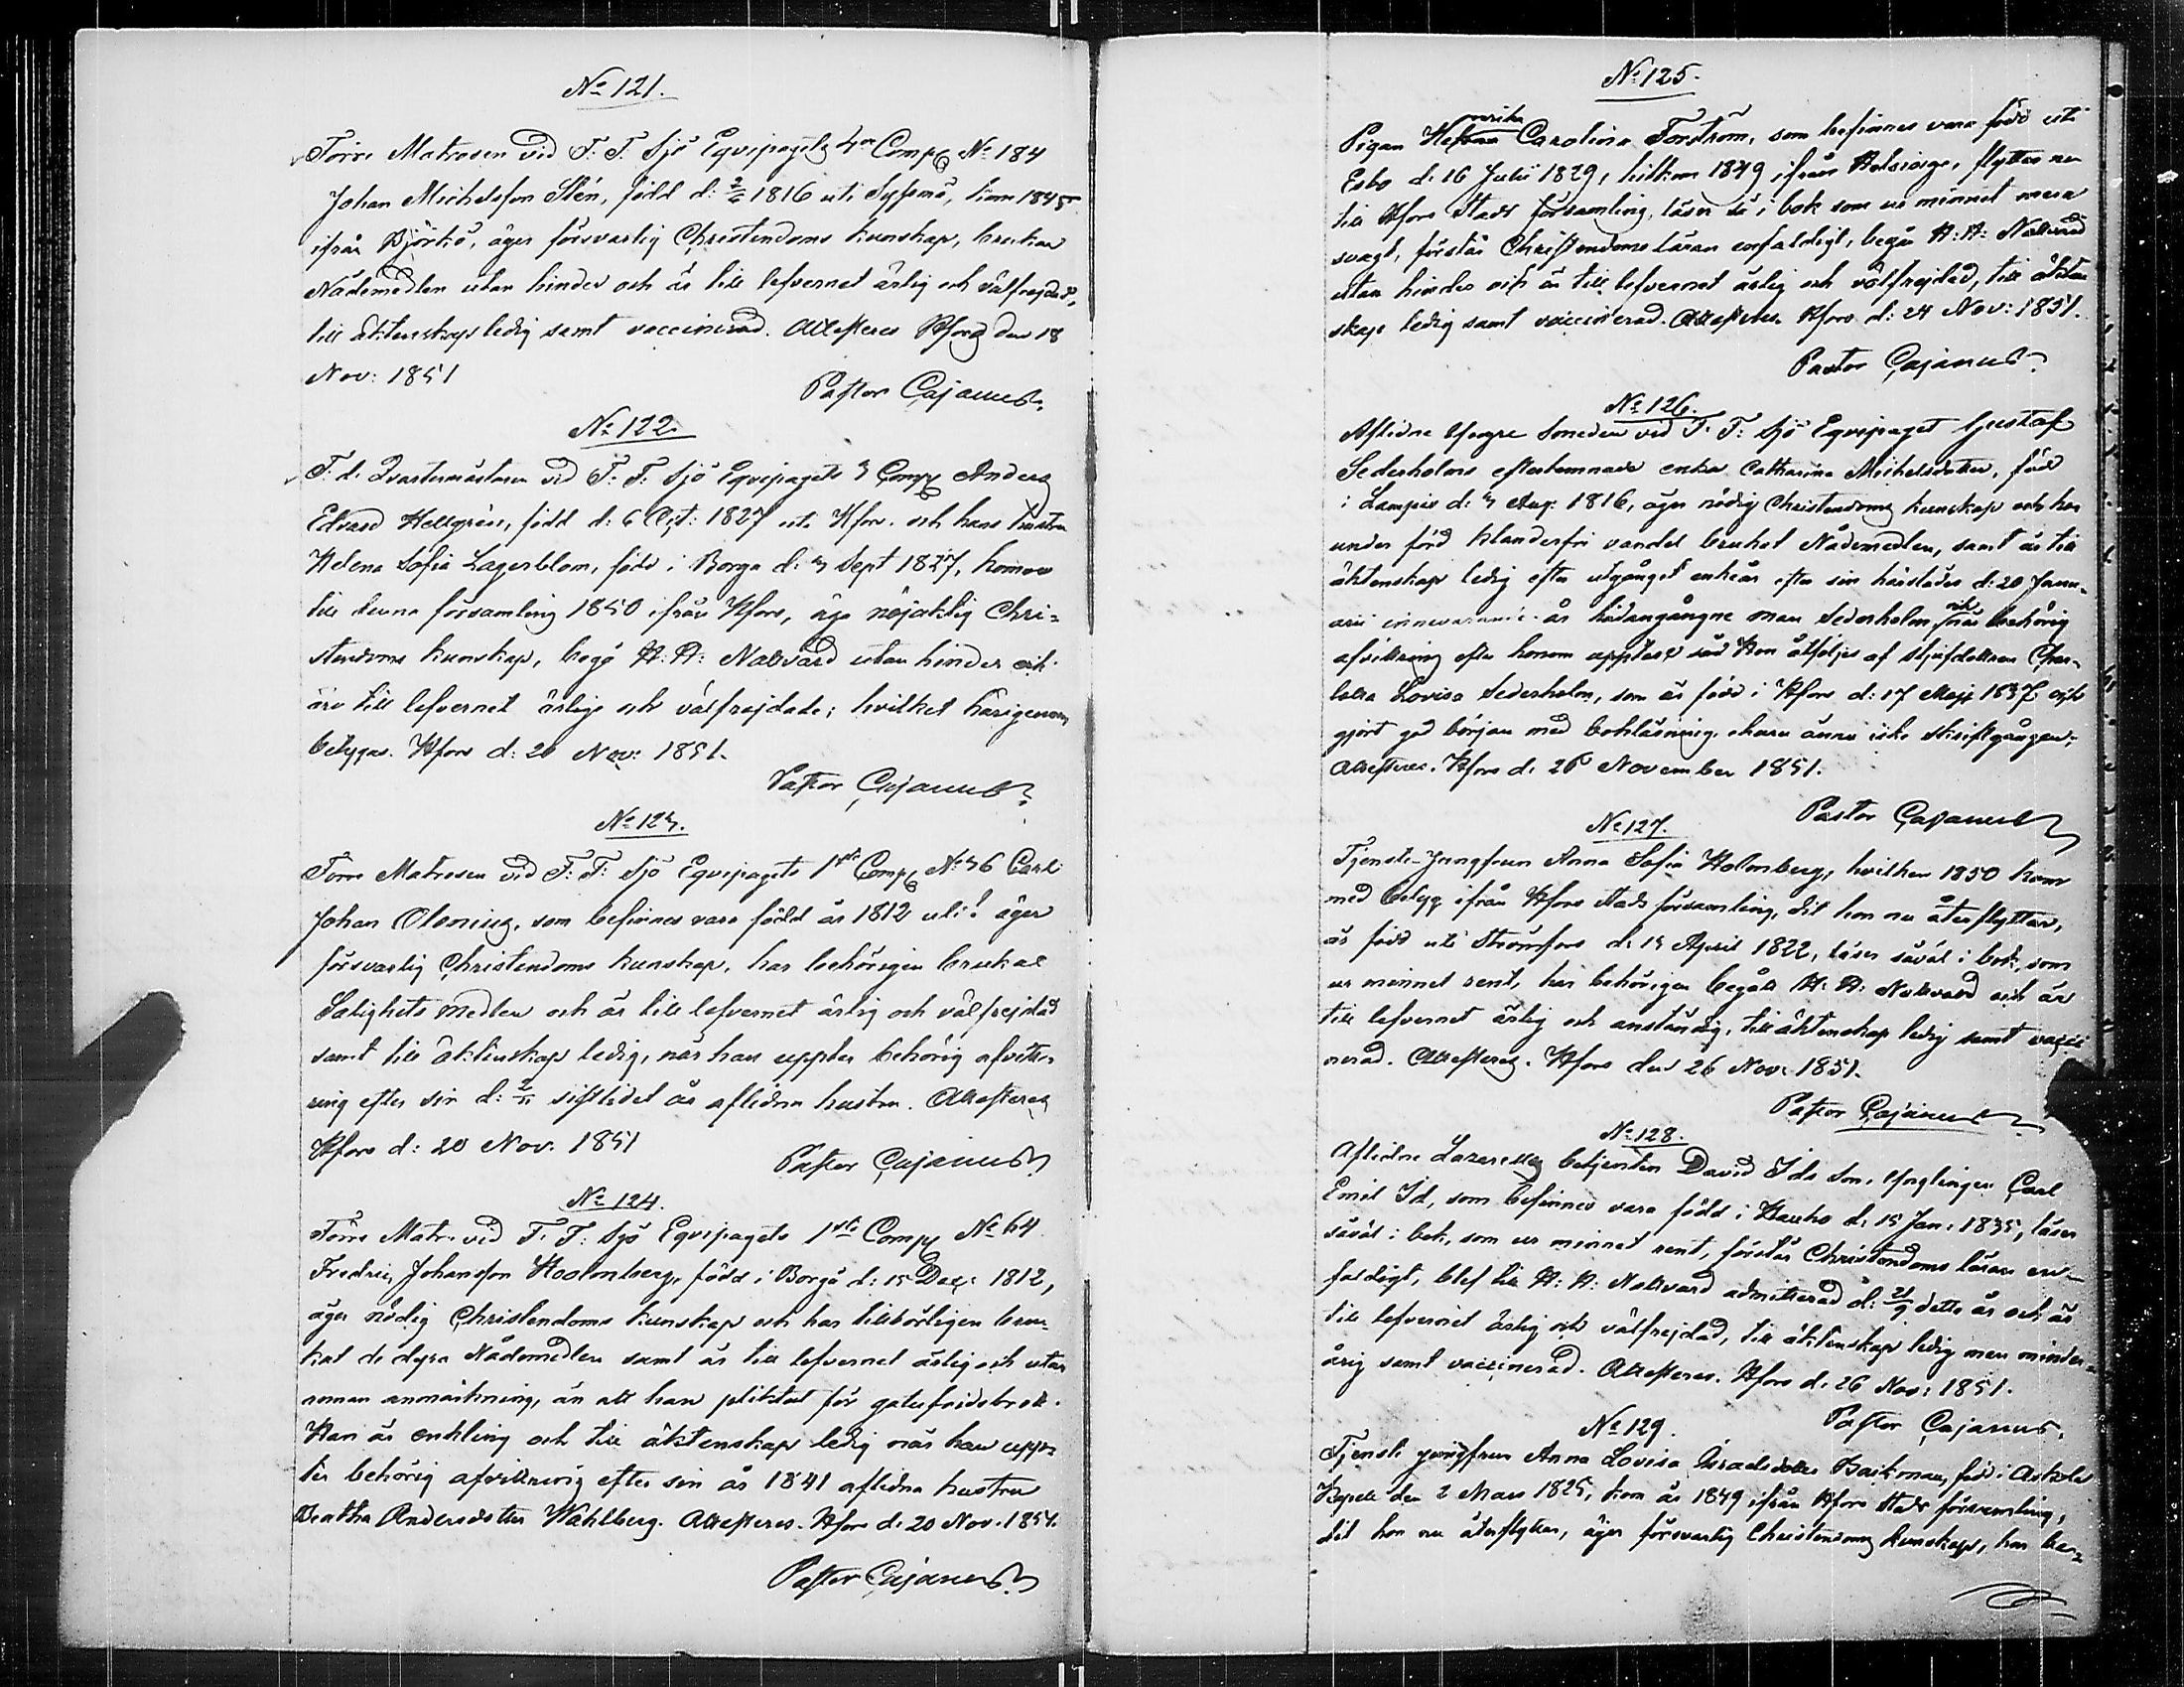 No 121.
Förre Matrosen vid F. F. Sjö Equipagets 4de Comp No 184
Johan Michelsson Stén, född d: 1816 uti, kom 1845
ifrån Björkö, äger försvarlig Christendoms kunskap, brukar
Nådemedlen utan hinder och är till lefvernet ärlig och välfrejdad,
till äktenskap ledig samt vaccinerad. Attesteras Hfors den 18
Nov: 1851
Pastor Cajanus
No 122.
F. d. Qvartermästaren vid F. F. Sjö Equipagets 3 Comp Anders
Edvard Hellgrén, född d: 6 Oct: 1827 uti Hfors. och hans hustru
Helena Sofia Lagerblom, född i Borgå d: 3 Sept 1827, komne
till denna församling 1850 ifrån Hfors, äga nöjaktig Chri-
stendoms kunskap, begå H. H. Nattvard utan hinder och
äro till lefvernet ärlige och välfrejdade; hvilket härigenom
betygas. Hfors d: 20 Nov: 1851.
Pastor Cajanus
No 123.
Förre Matrosen vid F. F. Sjö Equipagets 1sta Comp No 36 Carl
Johan Olenius, som befinnes vara född år 1812 uti? äger
försvarlig Christendoms kunskap, har behörigen brukat
Salighets medlen och är till lefvernet ärlig och välfrejdad
samt till äktenskap ledig, när han uppter behörig afvitt-
ring efter sin d: 2/11 sistlidet år aflidna hustru. Attesteras
Hfors d: 20 Nov. 1851
Pastor Cajanus
No 124.
Förre Matr. vid F. F. Sjö Equipagets 1sta Comp No 64
Fredric Johansson Holmberg, född i Borgå d: 15 Dec: 1812,
äger nödig Christendoms kunskap och har tillbörligen bru-
kat de dyra Nådemedlen samt är till lefvernet ärlig och utan
annan anmärkning, än att han pliktat för gatufridsbrott.
Han är enkling och till äktenskap ledig när han upp-
ter behörig afvittring efter sin år 1841 aflidna hustru
Beatha Andersdotter Wahlberg. Attesteras. Hfors d. 20 Nov. 1851.
Pastor Cajanus
No 125.
Pigan Hel Carolina Forström, som befinnes vara född uti
Esbo d. 16 Julii 1829, hitkom 1849 ifrån Helsinge, flyttar nu
till Hfors Stads församling, läser så i bok som ur minnet mera
svagt, förstår Christendoms läran enfaldigt, begår H. H. Nattvard
utan hinder och är till lefvernet ärlig och välfrejdad, till äkten-
skap ledig samt vaccinerad. Attesteras. Hfors d: 24 Nov: 1851.
Pastor Cajanus
No 126.
Aflidne Yngre Smeden vid F. F. Sjö Equipaget Gustaf
Sederholms efterlemnade enka Catharina Michelsdotter, född
i Lampis d: 3 Aug: 1816, äger nödig Christendoms kunskap och har
under förd klanderfri vandel brukat Nådemedlen, samt är till
äktenskap ledig efter utgånget enkeår efter sin härstädes d: 20 Janu-
arii innevarande år hädangångne man Sederholm och när behörig
afvittring efter honom uppter. Hon åtföljes af stjufdottren Char-
lotta Lovisa Sederholm, som är född i Hfors d: 17 Maji 1837 och
gjort god början med bokläsning, ehuru ännu icke skriftgången;
Attesteras. Hfors d. 26 November 1851.
Pastor Cajanus
No 127.
Tjenste-Jungfrun Anna Sofia Holmberg, hvilken 1850 kom
med betyg ifrån Hfors Stads församling, dit hon nu återflyttar,
är född uti Strömfors d: 13 April 1822, läser såväl i bok, som
ur minnet rent, har behörigen begått H. H. Nattvard och är
till lefvernet ärlig och anständig, till äktenskap ledig samt vacci
nerad. Attesteras. Hfors den 26 Nov: 1851.
Pastor Cajanus
No 128.
Aflidne Lazaretts betjenten David Ids son, Ynglingen Carl
Emil Id, som befinnes vara född i Hauho d. 15 Jan: 1835, läser
såväl i bok, som ur minnet rent, förstår Christendoms läran en-
faldigt, blef till H. H. Nattvard admitterad d: 21/9 detta år och är
till lefvernet ärlig och välfrejdad, till äktenskap ledig men minder-
årig samt vaccinerad. Attesteras. Hfors d. 26 Nov: 1851.
Pastor Cajanus.
No 129.
Tjenste jungfrun Anna Lovisa Israelsdotter, född i Askola
Kapell den 2 Mars 1825, kom år 1849 ifrån Hfors Stads församling,
dit hon nu återflyttar, äger försvarlig Christendoms kunskap, har be-